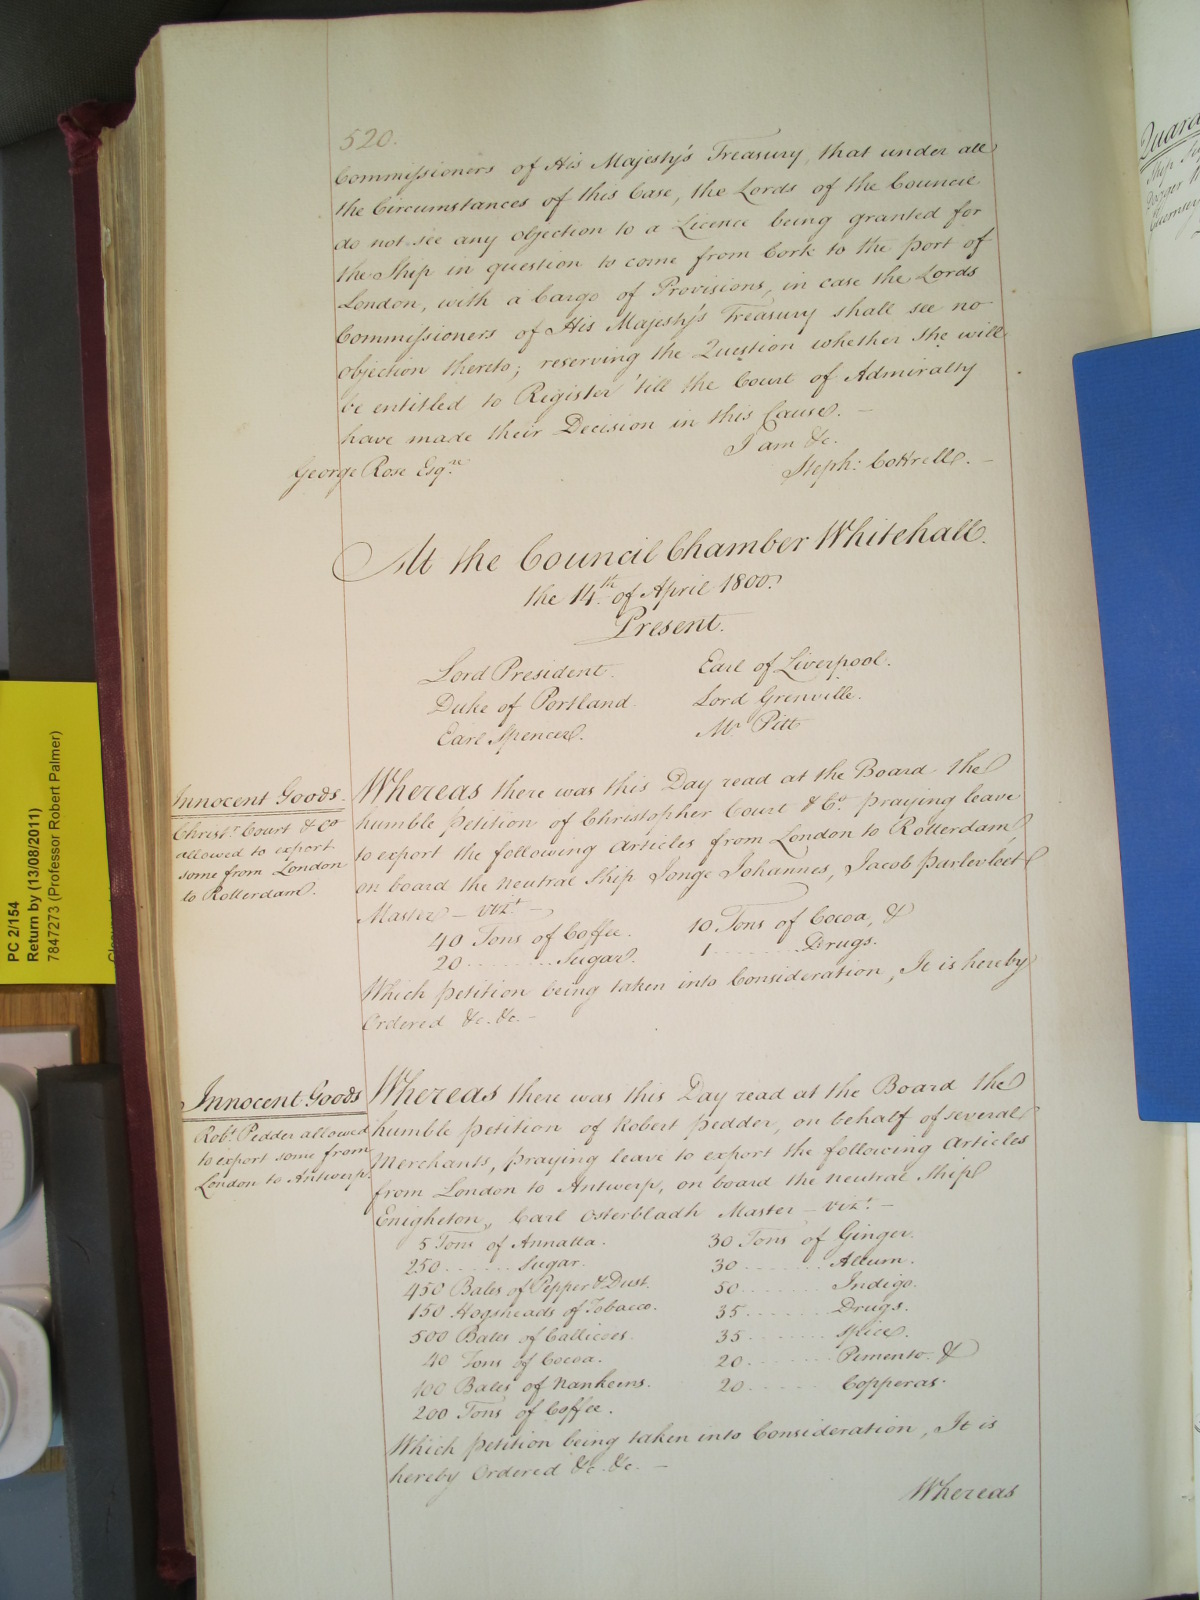 520.
Commissioners of His Majesty's Treasury, that under all
the Circumstances of this Case, the Lords of the Council
do not see any objection to a Licence being granted for
the Ship in question to come from Cork to the port of
London, with a Cargo of Provisions, in case the Lords
Commissioners of His Majesty's Treasury shall see no
objection thereto; reserving the Question whether she will
be entitled to Register 'till the Court of Admiralty
have made their Decision in this Cause. —
I am &c.
George Rose Esqre.
Steph: Cottrell. —
At the Council Chamber Whitehall.
the 14th. of April 1800.
Present.
Lord President. Earl of Liverpool.
Duke of Portland. Lord Grenville.
Earl Spencer. Mr. Pitt
Innocent Goods.
Christr. Court & Co
allowed to export
some from London
to Rotterdam.
Whereas there was this Day read at the Board the
humble Petition of Christopher Court & Co. praying leave
to export the following Articles from London to Rotterdam,
on board the neutral Ship Jonge Johannes, Jacob Parlevloet
Master — vizt. —
40 Tons of Coffee. 10 Tons of Cocoa, &
20 ........ Sugar. 1 ........ Drugs.
Which Petition being taken into Consideration, It is hereby
Ordered &c. &c. —
Innocent Goods
Robt. Pedder allowed
to export some from
London to Antwerp.
Whereas there was this Day read at the Board the
humble Petition of Robert Pedder, on behalf of several
Merchants, praying leave to export the following Articles
from London to Antwerp, on board the neutral Ship
Enigheton, Carl Osterbladh Master — vizt. —
5 Tons of Annatta. 30 Tons of Ginger.
250 ....... Sugar. 30 ........ Allum.
450 Bales of Pepper & Dust. 50 ........ Indigo.
150 Hogsheads of Tobacco. 35 ........ Drugs.
500 Bales of Callicoes. 35 ........ Spice.
40 Tons of Cocoa. 20 ........ Pimento. &
100 Bales of Nankeens. 20 ........ Copperas.
200 Tons of Coffee.
Which Petition being taken into Consideration, It is
hereby Ordered &c. &c. —
Whereas
PC 2/154
Return by (13/08/2011)
7847273 (Professor Robert Palmer)